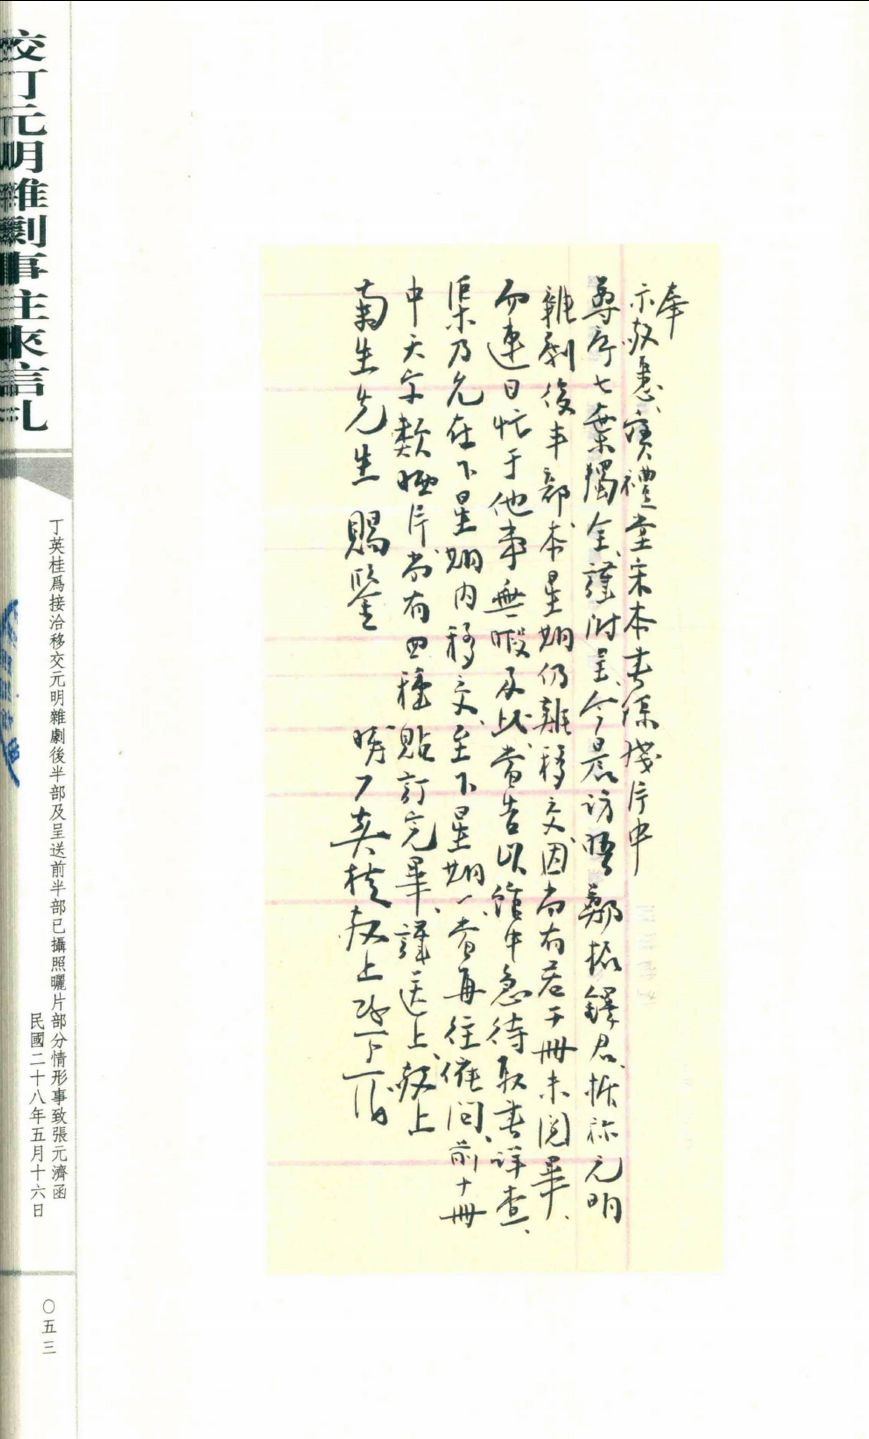 奉
示敬悉寶禮堂宋本書錄殘片中
尊序七葉獨全謹附呈今晨访晤鄭振鐸君據称元明
雜劇後半部本星期仍難移交因尚有若干冊未閱畢
而連日忙于他事無暇及此當告以館中急待取書詳查
渠乃允在下星期内移交至下星期一當再往催问前十冊
中天字数晒片尚有四種點訂完畢謹送上敬上
菊生先生 賜鑒
晚丁英桂敬上
校订元明雜劇事往來信札
丁英桂爲接洽移交元明雜劇後半部及呈送前半部已攝照曬片部分情形事致張元濟函
民國二十八年五月十六日
〇五三